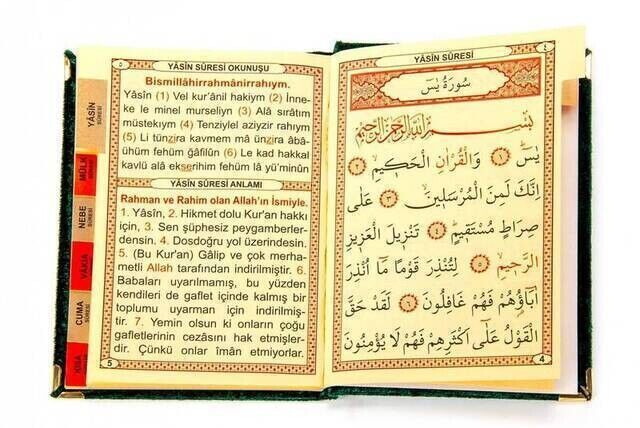 ٥
YÂSİN SÛRESİ OKUNUŞU
Bismillâhirrahmânirrahıym.
Yâsîn (1) Vel kur'ânil hakiym (2) İnne-
ke le minel murseliyn (3) Alâ sırâtım
müstekıym (4) Tenziylel aziyzir rahıym
(5) Li tünzira kavmem mâ ünzira âbâ-
ühüm fehüm gâfilûn (6) Le kad hakkal
kavlü alâ ekserihim fehüm lâ yü'minûn
YÂSİN SÛRESİ ANLAMI
Rahman ve Rahim olan Allah'ın İsmiyle.
1. Yâsîn, 2. Hikmet dolu Kur'an hakkı
için, 3. Sen şüphesiz peygamberler-
densin. 4. Dosdoğru yol üzerindesin.
5. (Bu Kur'an) Gâlip ve çok merha-
metli Allah tarafından indirilmiştir. 6.
Babaları uyarılmamış, bu yüzden
kendileri de gaflet içinde kalmış bir
toplumu uyarman için indirilmiş-
tir. 7. Yemin olsun ki onların çoğu
gafletlerinin cezasını hak etmişler-
dir. Çünkü onlar îmân etmiyorlar.
5
YÂSİN SÛRESİ
MÜLK
NEBE
SÛRESİ
VÂKIA
CUMA
SÛRESİ
YÂSİN SÛRESİ
٤
سُورَةُ يٰسٓ
بِسْمِ اللّٰهِ الرَّحْمٰنِ الرَّحِيمِ
يٰسٓ ﴿١﴾ وَالْقُرْاٰنِ الْحَكِيمِ ﴿٢﴾
اِنَّكَ لَمِنَ الْمُرْسَلِينَ ﴿٣﴾ عَلٰى
صِرَاطٍ مُسْتَقِيمٍ ﴿٤﴾ تَنْزِيلَ الْعَزِيزِ
الرَّحِيمِ ﴿٥﴾ لِتُنْذِرَ قَوْمًا مَٓا اُنْذِرَ
اٰبَٓاؤُ۬هُمْ فَهُمْ غَافِلُونَ ﴿٦﴾ لَقَدْ حَقَّ
الْقَوْلُ عَلٰٓى اَكْثَرِهِمْ فَهُمْ لَا يُؤْمِنُونَ
4